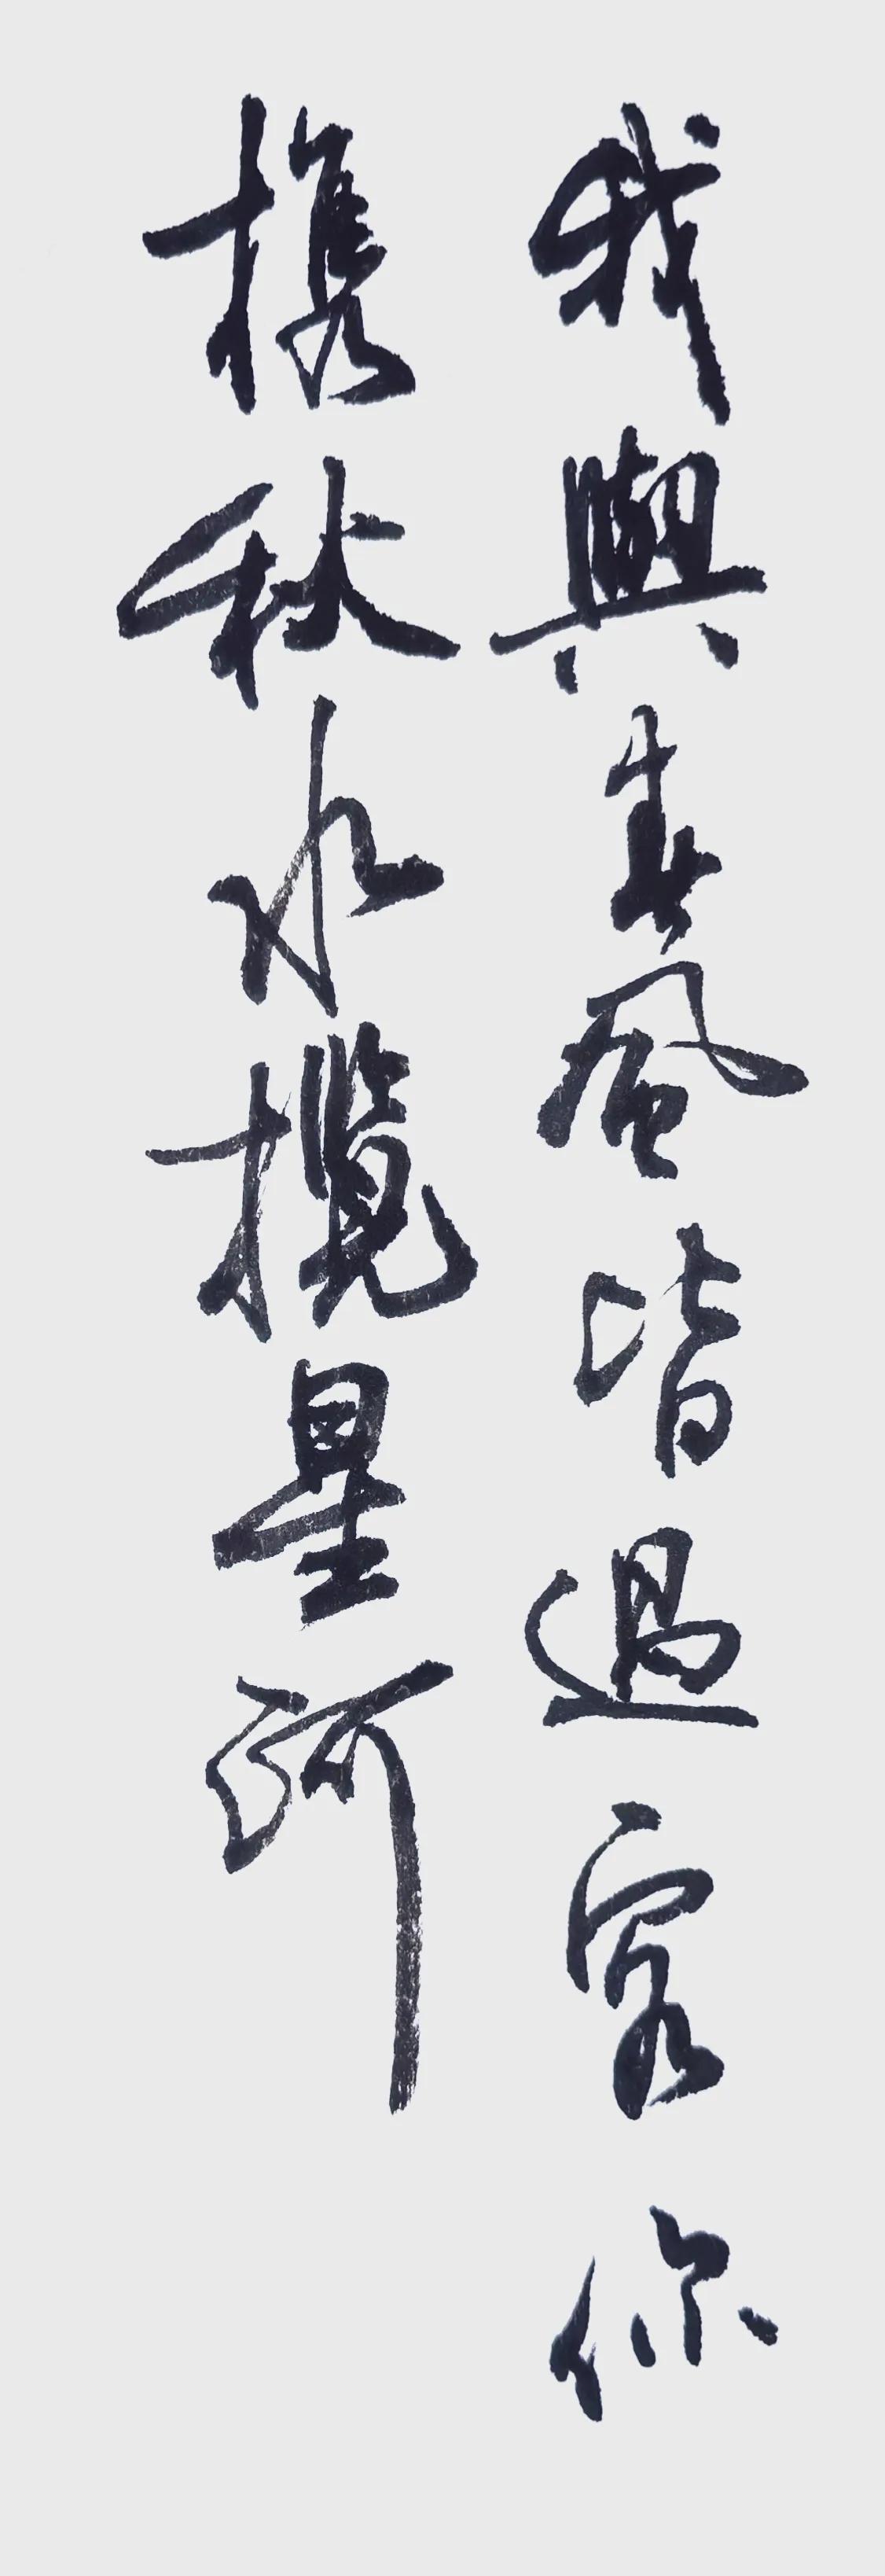 我與春風皆過客你
携秋水攬星河